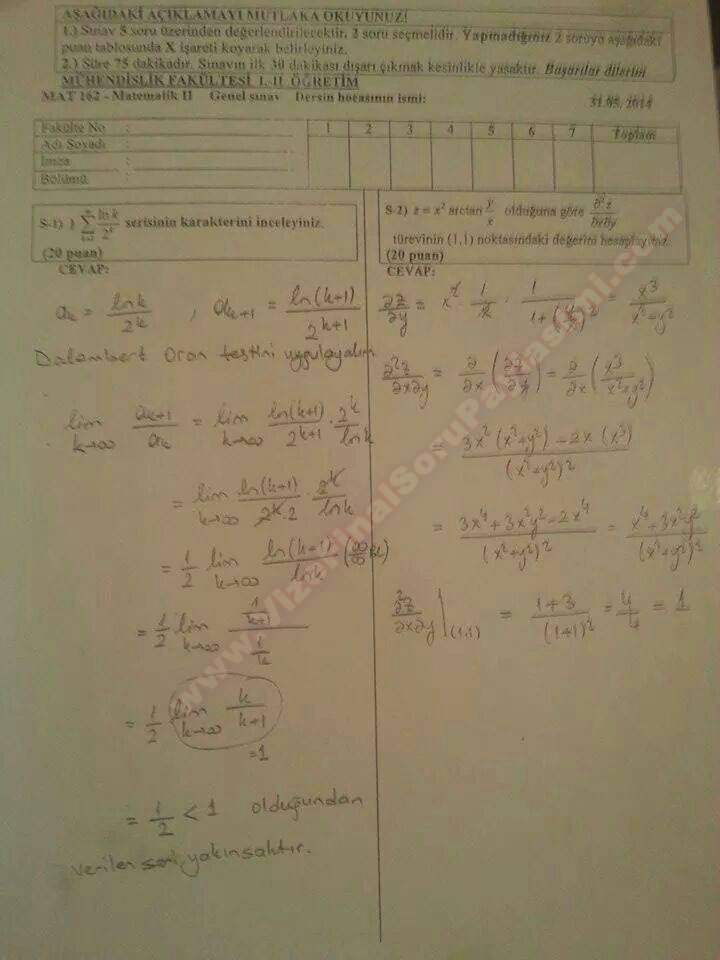 AŞAĞIDAKİ AÇIKLAMAYI MUTLAKA OKUYUNUZ!
1.) Sınav 5 soru üzerinden değerlendirilecektir. 2 soru seçmelidir. Yapmadığınız 2 soruya aşağıdaki
puan tablosunda X işareti koyarak belirleyiniz.
2.) Süre 75 dakikadır. Sınavın ilk 30 dakikası dışarı çıkmak kesinlikle yasaktır. Başarılar dilerim
MÜHENDİSLİK FAKÜLTESİ I.-II ÖĞRETİM
MAT 162 - Matematik II Genel sınav Dersin hocasının ismi:
Fakülte No :
Adı Soyadı :
İmza :
Bölümü :
1 2 3 4 5 6 7 Toplam
S-1) ) ∑ ln k / 2^k serisinin karakterini inceleyiniz.
(20 puan)
CEVAP:
a_k = ln k / 2^k , a_{k+1} = ln(k+1) / 2^{k+1}
Dalembert Oran testini uygulayalım
lim k→∞ a_{k+1} / a_k = lim k→∞ ln(k+1) / 2^{k+1} · 2^k / ln k
= lim k→∞ ln(k+1) / 2^k · 2 · 2^k / ln k
= 1/2 lim k→∞ ln(k+1) / ln k (∞/∞)
= 1/2 lim k→∞ (1/(k+1)) / (1/k)
= 1/2 lim k→∞ k / (k+1)
= 1
= 1/2 < 1 olduğundan
verilen seri yakınsaktır.
S-2) z = x² arctan y/x olduğuna göre ∂²z / ∂x∂y
türevinin (1,1) noktasındaki değerini hesaplayınız.
(20 puan)
CEVAP:
∂z/∂y = x² · 1/x · 1 / (1+(y/x)²) = x³ / (x²+y²)
∂²z/∂x∂y = ∂/∂x (∂z/∂y) = ∂/∂x (x³ / (x²+y²))
= 3x²(x²+y²) - 2x(x³) / (x²+y²)²
= 3x⁴ + 3x²y² - 2x⁴ / (x²+y²)² = x⁴ + 3x²y² / (x²+y²)²
∂²z/∂x∂y |(1,1) = 1+3 / (1+1)² = 4/4 = 1
www.VizeFinalSoruPaylasimi.com